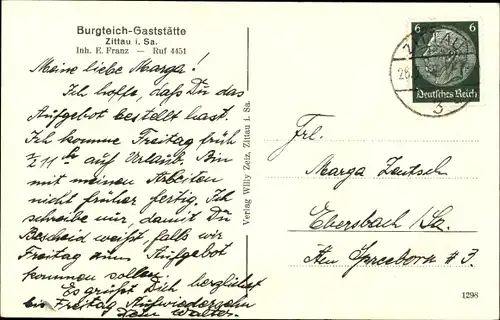 Burgteich-Gaststätte
Zittau i. Sa.
Inh. E. Franz — Ruf 4451
Meine liebe Marga!
Ich hoffe, daß Du das
Aufgebot bestellt hast.
Ich komme Freitag früh
½ 11 Uhr auf Urlaub. Bin
mit meinen Arbeiten
nicht früher fertig. Ich
schreibe nur, damit Du
Bescheid weißt, falls wir
Freitag zum Aufgebot
kommen sollen.
Es grüßt Dich herzlichst
bis Freitag, Aufwiedersehn
Dein Walter.
Verlag Willy Zeiz, Zittau i. Sa.
6 6
Deutsches Reich
ZITTAU
26.
3
Frl.
Marga Zentsch
Ebersbach/Sa.
Am Spreeborn # 3.
1298